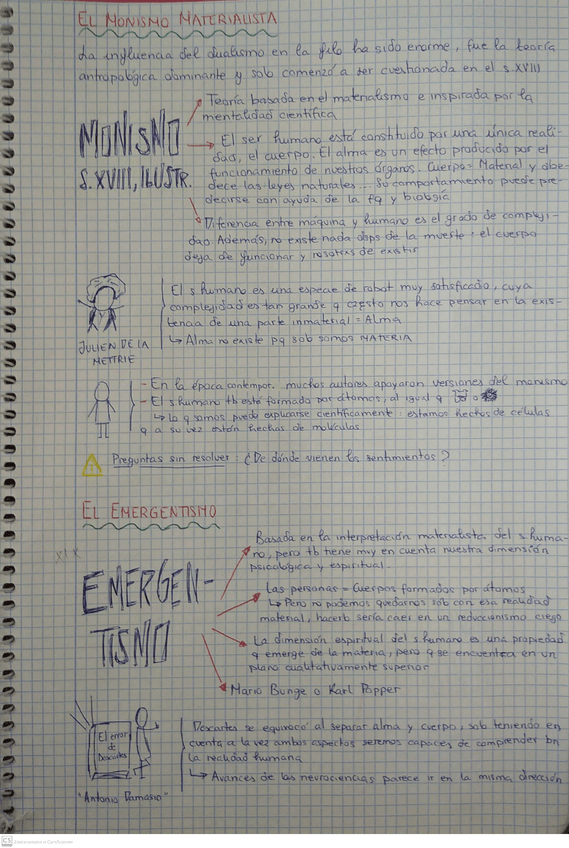 EL MONISMO MATERIALISTA
La influencia del dualismo en la filo ha sido enorme, fue la teoría
antropológica dominante y solo comenzó a ser cuestionada en el s.XVIII
MONISMO
S.XVIII, ILUSTR.
Teoría basada en el materialismo e inspirada por la
mentalidad científica
El ser humano está constituido por una única reali-
dad, el cuerpo. El alma es un efecto producido por el
funcionamiento de nuestros órganos. Cuerpo = Material y obe-
dece las leyes naturales... Su comportamiento puede pre-
decirse con ayuda de la fq y biología
Diferencia entre máquina y humano es el grado de compleji-
dad. Además, no existe nada dsps de la muerte: el cuerpo
deja de funcionar y nosotros de existir
JULIEN DE LA
METTRIE
El s humano es una especie de robot muy sofisticado, cuya
complejidad es tan grande q nos hace pensar en la exis-
tencia de una parte inmaterial = Alma
↳ Alma no existe pq solo somos MATERIA
- En la época contempor. muchos autores apoyaron versiones del monismo
- El s humano tb está formado por átomos, al igual q o
↳ Lo q somos puede explicarse científicamente: estamos hechos de células
q a su vez están hechas de moléculas
! Preguntas sin resolver: ¿De dónde vienen los sentimientos?
EL EMERGENTISMO
XIX
EMERGEN-
TISMO
Basada en la interpretación materialista del s huma-
no, pero tb tiene muy en cuenta nuestra dimensión
psicológica y espiritual.
Las personas = Cuerpos formados por átomos
↳ Pero no podemos quedarnos solo con esa realidad
material, hacerlo sería caer en un reduccionismo ciego
La dimensión espiritual del s humano es una propiedad
q emerge de la materia, pero q se encuentra en un
plano cualitativamente superior
Mario Bunge o Karl Popper
El error
de
Descartes
"Antonio Damasio"
Descartes se equivocó al separar alma y cuerpo, solo teniendo en
cuenta a la vez ambos aspectos seremos capaces de comprender bn
la realidad humana
↳ Avances de las neurociencias parece ir en la misma dirección
CS